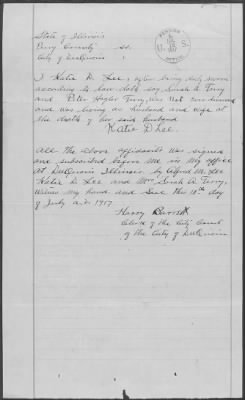 State of Illinois
Perry County ss.
City of DuQuoin
PENSION
OFFICE
I Katie D. Lee, after being duly sworn
according to law doth say Sarah A. Terry
and Peter Hagler Terry, was not divorced
and was living as Husband and wife at
the death of her said husband
Katie D Lee.
All the above affidavits was signed
and subscribed before me in my office
at DuQuoin Illinois by Alfred M. Lee
Katie D Lee and Mrs Sarah A. Terry,
witness my hand and seal this 18th day
of July A.D. 1917
Harry Barrett
Clerk of the City Court
of the City of DuQuoin